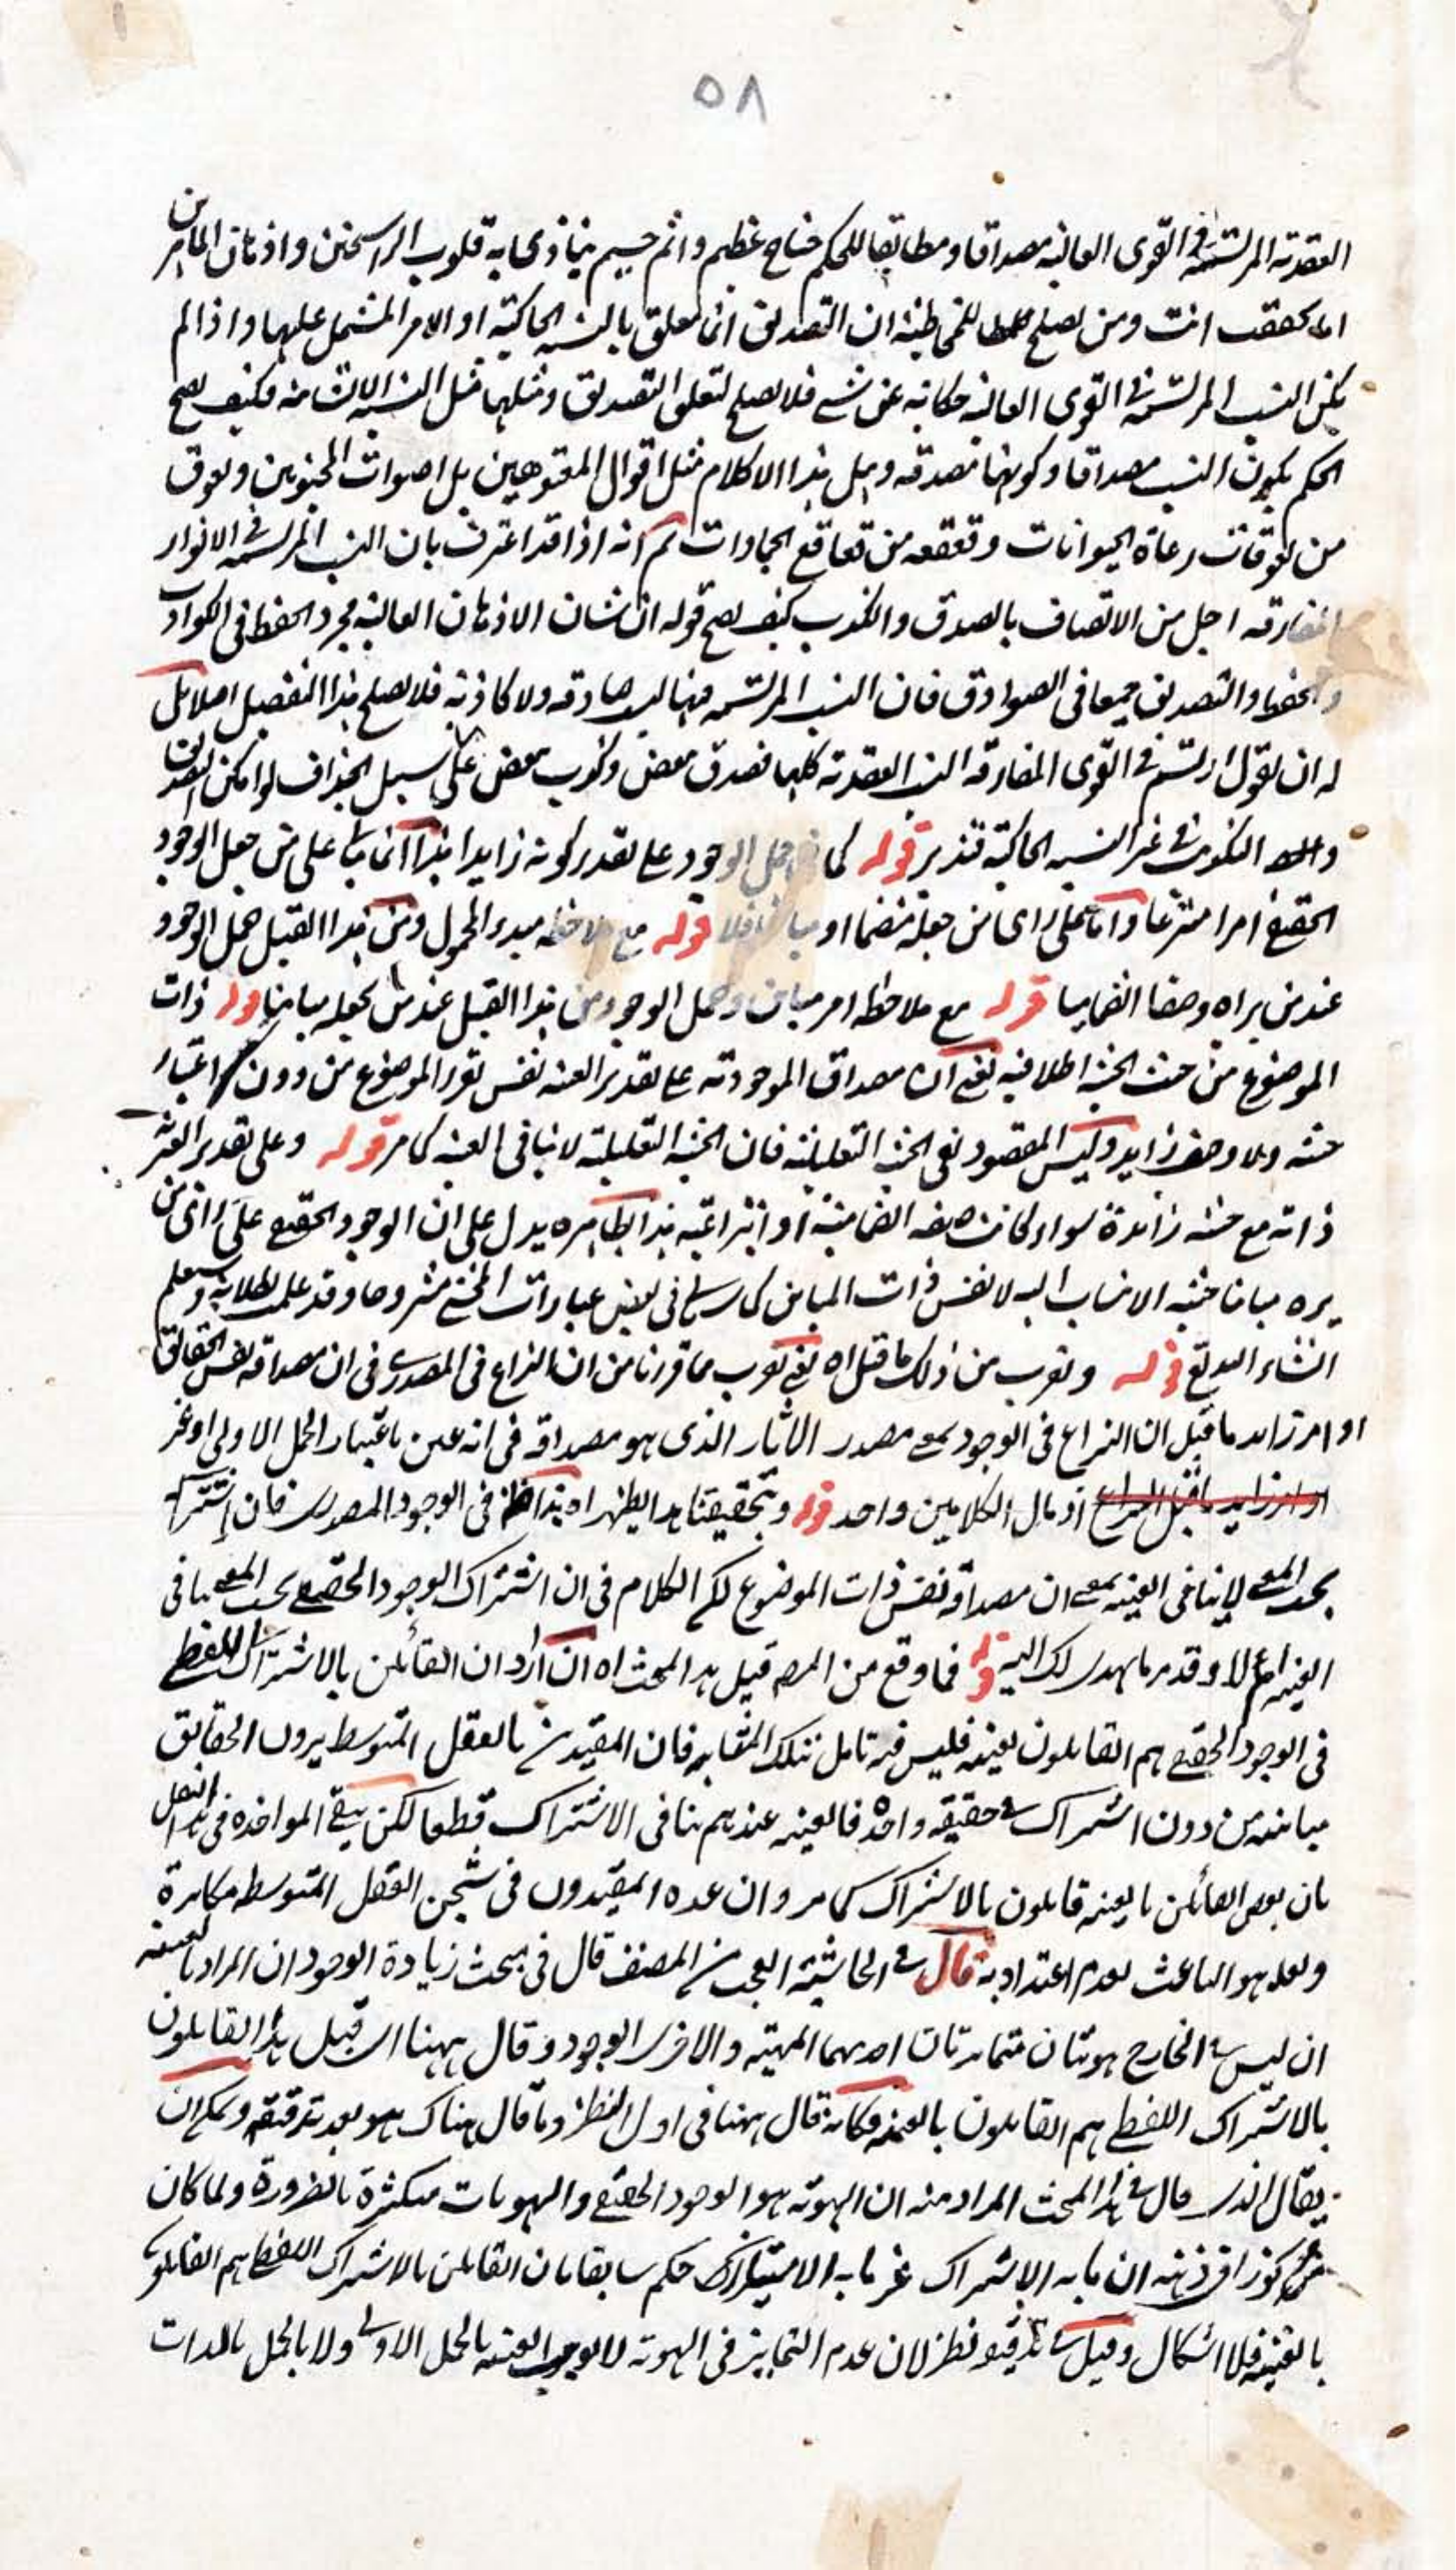 ٥٨
العقدية المرتسمة في القوى العالية مصداقا ومطابقا للحكم جناح عظيم واثم جسيم يتاذى به قلوب الراسخين واذهان الماهرين
اما تحققت انت ومن يصلح للمخاطبة ان التصديق انما يتعلق بالنسبة الحاكية او الامر المشتمل عليها واذا لم
يكن النسب المرتسمة في القوى العالية حكاية عن شيء فلا يصلح لتعلق التصديق ومثلها مثل النسب الانشائية فكيف يصح
الحكم بكون النسب مصداقا وكونها مصدقه وهل هذا الكلام مثل اقوال المعتوهين بل اصوات المجنونين ونعوق
من نعوقات رعاة الحيوانات وقعقعه من قعاقع الجمادات ثم انه اذا قد اعترف بان النسب المرتسمة في الانوار
المفارقه اجل من الاتصاف بالصدق والكذب كيف يصح قوله ان شان الاذهان العالية مجرد الحفظ في الكواذب
والحفظ والتصديق جميعا في الصوادق فان النسب المرتسمة فيها ليست صادقه ولا كاذبه فلا يصلح هذا التفصيل اصلا بل
له ان يقول ارتسم في القوى المفارقه النسب العقدية كلها فصدق بعض وكذب بعض على سبيل الجزاف لو امكن الصدق
والكذب في غير النسبة الحاكية فتدبر قوله كما في حمل الوجود على تقدير كونه زايدا هذا انما ياتي على من جعل الوجود
الحقيقي امرا منتزعا واما على راى من جعله منضما او مباينا فلا قوله مع ملاحظه مبدء المحمول ومن هذا القبيل حمل الوجود
عند من يراه وصفا انضماميا قوله مع ملاحظه امر مباين وحمل الوجود من هذا القبيل عند من يجعله مباينا قوله ذات
الموضوع من حيث الحيثية اطلاقية يعني ان مصداق الموجودية على تقدير العينية نفس تقرر الموضوع من دون اعتبار
حيثية ولا وصف زايد وليس المقصود نفى الحيثية التعليلية فان الحيثية التعليلية لا تنافي العينية كما مر قوله وعلى تقدير الغيرية
ذاته مع حيثية زائدة سواء كانت صفة انضمامية او انتزاعية هذا بظاهره يدل على ان الوجود الحقيقي على راى من
يره مباينا حيثية الانتساب اليه لا نفس ذات المباين كما سياتي في بعض عبارات المحشي مشروحا وقد علمت بطلانه وسيعلم
انشاء الله تعالى قوله ويقرب من ذلك ما قيل اه يعني يقرب مما قررنا من ان النزاع في المصدري في ان مصداقه نفس الحقائق
او امر زايد ما قيل ان النزاع في الوجود بمعنى مصدر الاثار الذى هو مصداقه في انه عين باعتبار الحمل الاولى او غير
او امر زايد ما قيل النزاع اذ مال الكلامين واحد قوله وبتحقيقنا هذا يظهر اه هذا ظاهر في الوجود المصدرى فان اشتراكه
بحسب المعنى لا ينافي العينية بمعنى ان مصداقه نفس ذات الموضوع لكن الكلام في ان اشتراك الوجود الحقيقي بحسب المعنى ينافي
العينية ام لا وقد مر ما يهدى لك اليه قوله فما وقع من المصنف قبيل هذا المبحث اه ان اراد ان القائلين بالاشتراك اللفظي
في الوجود الحقيقي هم القايلون بعينيته فليس فيه تامل لتلك المقابلة فان المقيدين بالعقل المتوسط يرون الحقايق
مباينة من دون اشتراك في حقيقه واحدة فالعينية عندهم ينافي الاشتراك قطعا لكن يبقى المواخذه في هذا النقل
بان بعض القائلين بالعينية قايلون بالاشتراك كما مر وان عده المقيدون في سجن العقل المتوسط مكابرة
ولعله هو الباعث لعدم اعتداده به قال في الحاشية العجب من المصنف قال في مبحث زيادة الوجود ان المراد بالعينية
ان ليس في الخارج هويتان متمايزتان احدهما المهية والاخرى الوجود وقال ههنا قبيل هذا القايلون
بالاشتراك اللفظي هم القايلون بالعينية فكانه قال ههنا في اول النظر وما قال هناك هو بعد تدقيقه ويمكن ان
يقال الذى قال في هذا المبحث المراد منه ان الهوية هو الوجود الحقيقي والهويات متكثرة بالضرورة ولما كان
مركوزا في ذهنه ان ما به الاشتراك غير ما به الامتياز حكم سابقا بان القايلين بالاشتراك اللفظي هم القايلون
بالعينية فلا اشكال وقيل في تدقيقه نظر لان عدم التمايز في الهوية لا يوجب العينية بالحمل الاولى ولا بالحمل بالذات